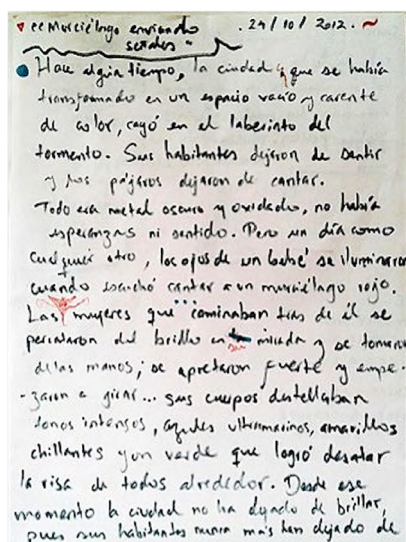 "Murciélago enviando 24/10/2012.
señales"
Hace algún tiempo, la ciudad que se había
transformado en un espacio vacío y carente
de color, cayó en el laberinto del
tormento. Sus habitantes dejaron de sentir
y los pájaros dejaron de cantar.
Todo era metal oscuro y oxidado, no había
esperanzas ni sentido. Pero un día como
cualquier otro, los ojos de un bebé se iluminaron
cuando escuchó cantar a un murciélago rojo.
Las mujeres que caminaban tras de él se
percataron del brillo en su mirada y se tomaron
de las manos; se apretaron fuerte y empe-
-zaron a girar... sus cuerpos destellaban
tonos intensos, azules ultramarinos, amarillos
chillantes y un verde que logró desatar
la risa de todos alrededor. Desde ese
momento la ciudad no ha dejado de brillar,
pues sus habitantes nunca más han dejado de